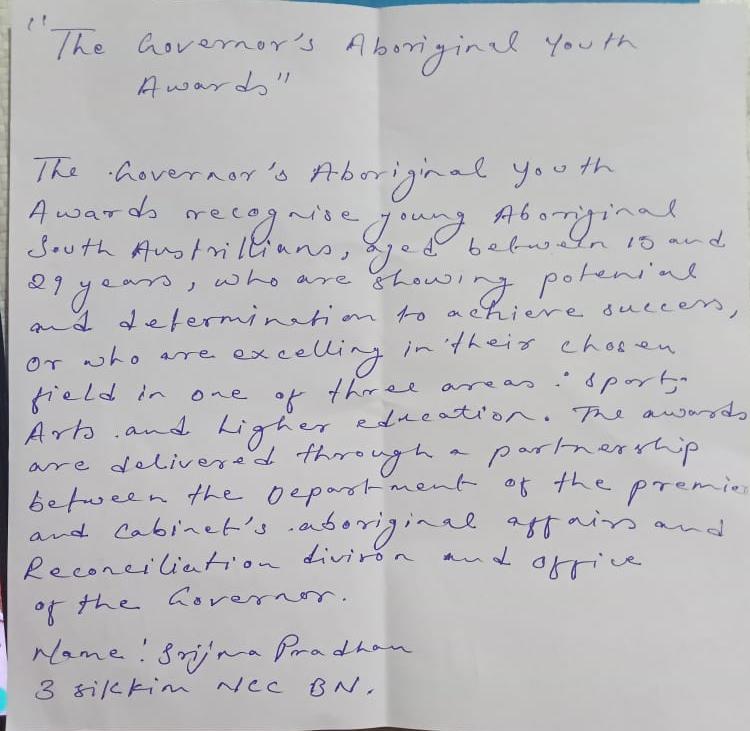 "The Governor's Aboriginal Youth
Awards"
The Governor's Aboriginal youth
Awards recognise young Aboriginal
South Austrillians, aged between 15 and
29 years, who are showing potenial
and determination to achieve success,
or who are excelling in their chosen
field in one of three areas : sport,
Arts and higher education. The awards
are delivered through a partnership
between the Department of the premie
and cabinet's aboriginal affairs and
Reconciliation divison and office
of the Governor.
Name : Srijma Pradhan
3 sikkim NCC BN.